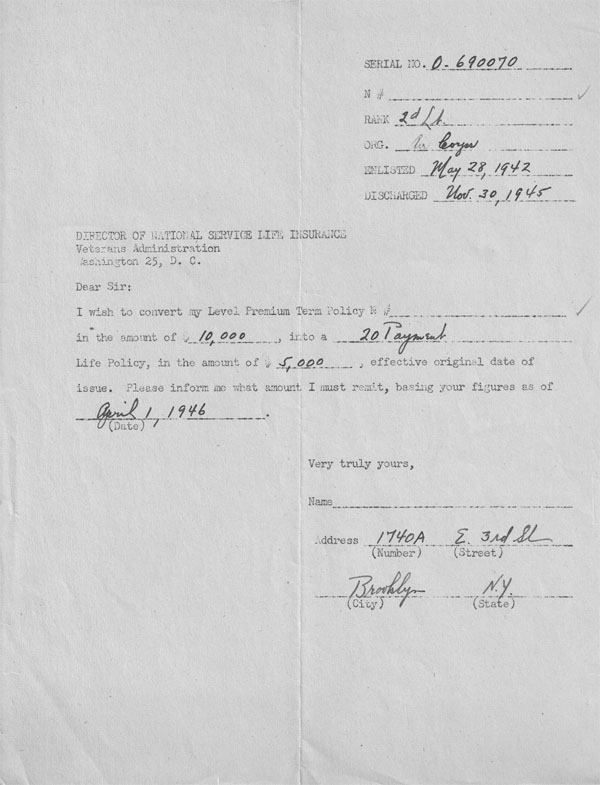 SERIAL NO. O-690070
N #
RANK 2d Lt.
ORG. Air Corps
ENLISTED May 28, 1942
DISCHARGED Nov. 30, 1945
DIRECTOR OF NATIONAL SERVICE LIFE INSURANCE
Veterans Administration
Washington 25, D. C.
Dear Sir:
I wish to convert my Level Premium Term Policy N #
in the amount of $ 10,000 , into a 20 Payment
Life Policy, in the amount of $ 5,000 , effective original date of
issue. Please inform me what amount I must remit, basing your figures as of
April 1, 1946 .
(Date)
Very truly yours,
Name
Address 1740A E. 3rd St
(Number) (Street)
Brooklyn N.Y.
(City) (State)